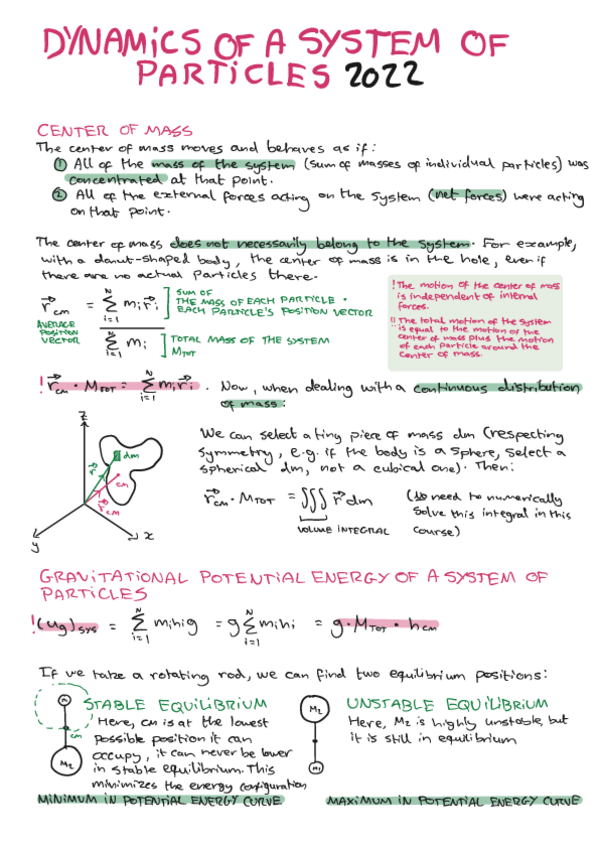 DYNAMICS OF A SYSTEM OF
PARTICLES 2022
CENTER OF MASS
The center of mass moves and behaves as if:
① All of the mass of the system (sum of masses of individual particles) was
concentrated at that point.
② All of the external forces acting on the system (net forces) were acting
on that point.
The center of mass does not necessarily belong to the system. For example,
with a donut-shaped body, the center of mass is in the hole, even if
there are no actual particles there.
! The motion of the center of mass
is independent of internal
forces.
!! The total motion of the system
is equal to the motion of the
center of mass plus the motion
of each particle around the
center of mass.
r⃗cm = N Σ i=1 mi r⃗i
SUM OF
THE MASS OF EACH PARTICLE ·
EACH PARTICLE'S POSITION VECTOR
AVERAGE
POSITION
VECTOR
N Σ i=1 mi
TOTAL MASS OF THE SYSTEM
MTOT
! r⃗cm · MTOT = N Σ i=1 mi r⃗i . Now, when dealing with a continuous distribution
of mass:
z
dm
r⃗
cm
r⃗cm
y
x
We can select a tiny piece of mass dm (respecting
symmetry, e.g. if the body is a sphere, select a
spherical dm, not a cubical one). Then:
r⃗cm · MTOT = ∭ r⃗ dm
VOLUME INTEGRAL
(no need to numerically
solve this integral in this
course)
GRAVITATIONAL POTENTIAL ENERGY OF A SYSTEM OF
PARTICLES
! (Ug)sys = N Σ i=1 mi hi g = g N Σ i=1 mi hi = g · MTOT · hcm
If we take a rotating rod, we can find two equilibrium positions:
STABLE EQUILIBRIUM
Here, cm is at the lowest
possible position it can
occupy, it can never be lower
in stable equilibrium. This
minimizes the energy configuration
cm
M2
MINIMUM IN POTENTIAL ENERGY CURVE
UNSTABLE EQUILIBRIUM
Here, M2 is highly unstable, but
it is still in equilibrium
M2
M1
MAXIMUM IN POTENTIAL ENERGY CURVE